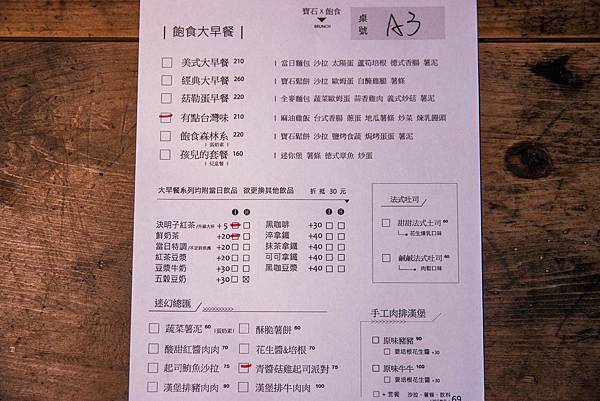 寶石 x 飽食
BRUNCH
桌號 A3
飽食大早餐
美式大早餐 210 | 當日麵包 沙拉 太陽蛋 蘆筍培根 德式香腸 薯泥
經典大早餐 260 | 寶石鬆餅 沙拉 歐姆蛋 自醃雞腿 薯條
菇勒蛋早餐 220 | 全麥麵包 蔬菜歐姆蛋 蒜香雞肉 義式炒菇 薯泥
有點台灣味 210 | 麻油雞飯 台式香腸 蔥蛋 地瓜薯條 炒菜 煉乳饅頭
飽食森林系 220 | 寶石鬆餅 沙拉 鹽烤食蔬 焗烤蛋蛋 薯泥
(蛋奶素)
孩兒的套餐 160 | 迷你堡 薯條 德式章魚 炒蛋
(兒童餐)
大早餐系列均附當日飲品 欲更換其他飲品 折抵 30 元
決明子紅茶 /升級大杯 +5
鮮奶茶 +20
當日特調 /不定期供應 +20
紅茶豆漿 +20
豆漿牛奶 +30
五穀豆奶 +30
黑咖啡 +30
淬拿鐵 +40
抹茶拿鐵 +40
可可拿鐵 +40
黑咖豆漿 +40
法式吐司
甜甜法式土司 60
花生煉乳口味
鹹鹹法式吐司 60
肉鬆口味
迷幻總匯
蔬菜薯泥 60 (蛋奶素)
酥脆薯餅 60
酸甜紅醬肉肉 70
花生醬&培根 70
起司鮪魚沙拉 75
青醬菇雞起司派對 75
漢堡排豬肉肉 90
漢堡排牛肉肉 100
手工肉排漢堡
原味豬豬 90
要培根花生醬 +30
原味牛牛 100
要培根花生醬 +30
+ 套餐 沙拉、薯條、飲料 69